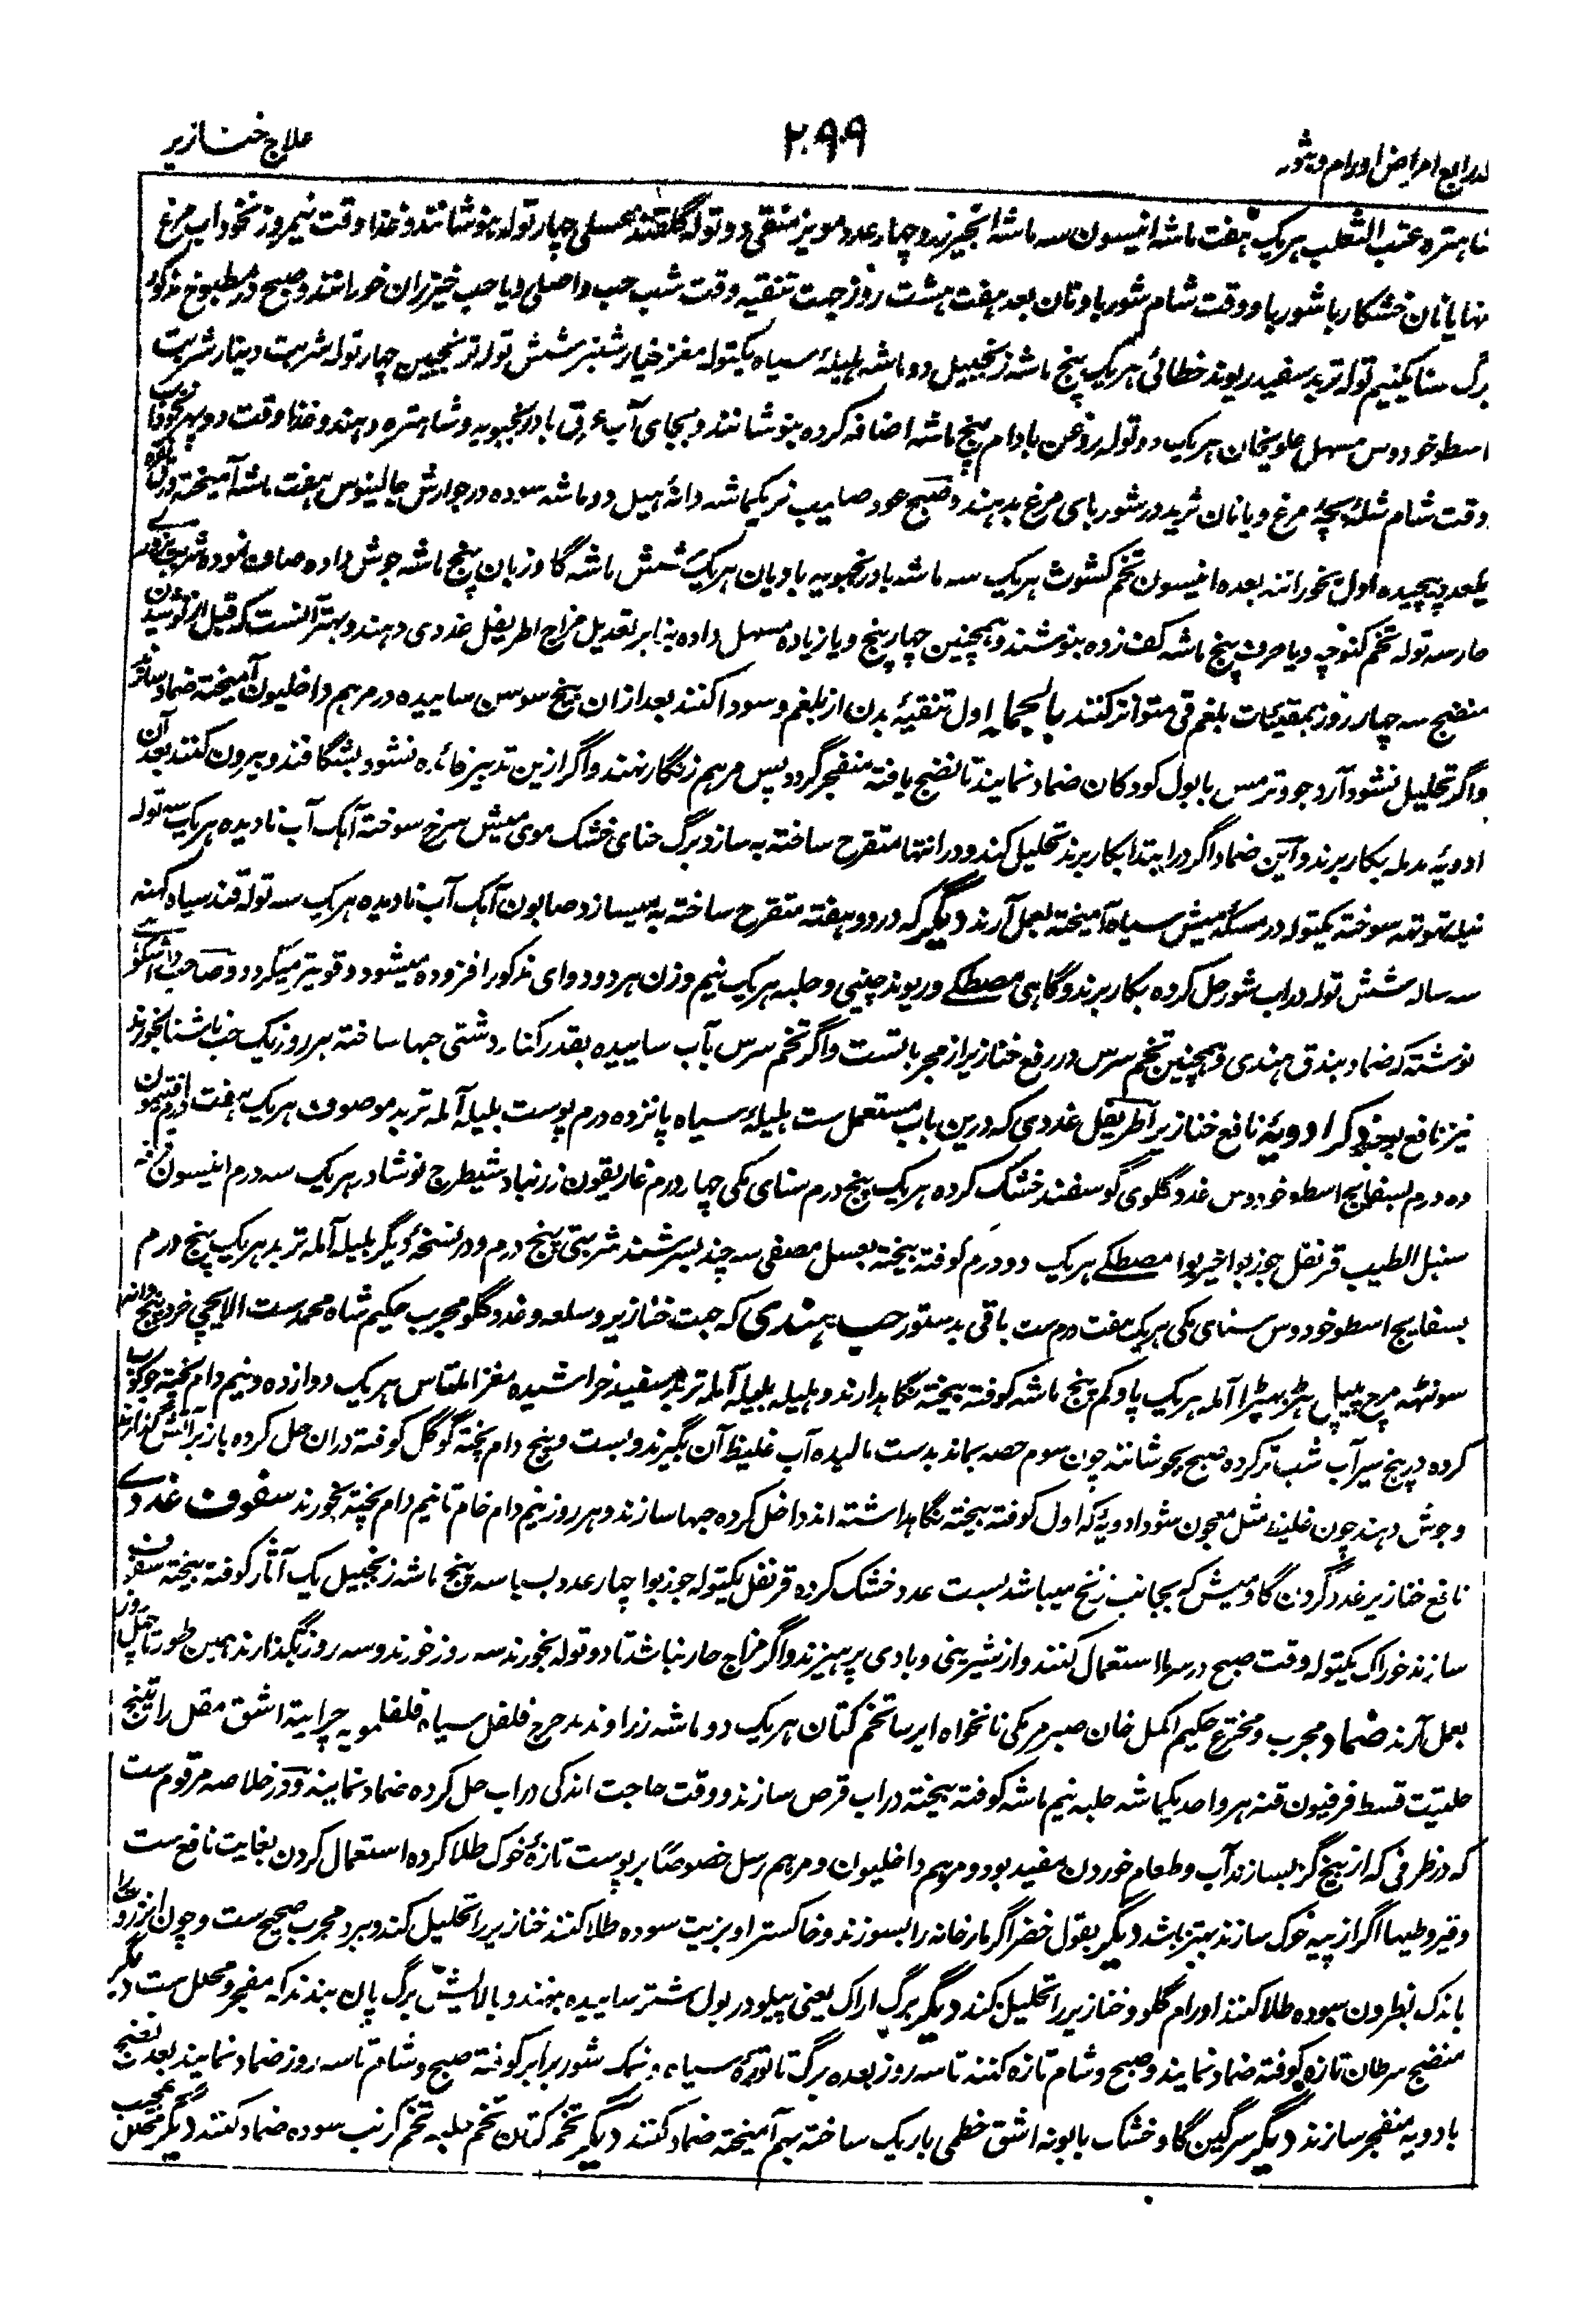 علاج خنازیر
۲۹۹
امراض اورام و بثور
شاهتره عنب الثعلب هریک هفت ماشه انیسون سه ماشه انجیر زرد چهار عدد مویز منقی دو توله گلقند عسلی چهار توله بنوشانند و غذا وقت نیمروز نخوداب مرغ
تنها یا نان خشکار با شوربا و وقت شام شوربا و نان بعد هفت هشت روز جهت تنقیه وقت شب حب و اصلی و یا حب خیزران خورانند و صبح در مطبوخ مذکور
برگ سنا یکنیم توله تربد سفید ریوند خطائی هریک پنج ماشه زنجبیل دو ماشه هلیلهٔ سیاه یکتوله مغز خیارشنبر شش توله ترنجبین چهار توله شربت دینار شربت
اسطوخودوس مسهل علویخان هریک دو توله روغن بادام پنج ماشه اضافه کرده بنوشانند و بجای آب عرق بادرنجبویه و شاهتره دهند و غذا وقت دوپهر نخوداب
وقت شام شلهٔ بچهٔ مرغ و یا نان ثرید در شوربای مرغ بدهند و صبح عود صلیب نر یکماشه دانهٔ هیل دو ماشه سوده در جوارش جالینوس هفت ماشه آمیخته ورق نقره
یکعدد پیچیده اول بخورانند بعده انیسون تخم کشوث هریک سه ماشه بادرنجبویه بادیان هریک شش ماشه گاوزبان پنج ماشه جوش داده صاف نموده شربت بزوری
حار سه توله تخم کنوچه و یا صرف پنج ماشه کف زده بنوشند و همچنین چهار پنج و یا زیاده مسهل داده بنابر تعدیل مزاج اطریفل غددی دهند و بهتر آنست که قبل از نوشیدن
منضج سه چهار روز بمقیئات بلغم قی متواتر کنند بالجمله اول تنقیهٔ بدن از بلغم و سودا کنند بعد ازان بیخ سوسن ساییده در مرهم داخلیون آمیخته ضماد سازند
و اگر تحلیل نشود آرد جو و ترمس با بول کودکان ضماد نمایند تا نضج یافته منفجر گردد پس مرهم زنگار نهند و اگر ازین تدبیر فائده نشود بشگافند و بیرون کنند بعد آن
ادویهٔ مدمله بکار برند و این ضماد اگر در ابتدا بکار برند تحلیل کند و در انتها متقرح ساخته به سازد برگ حنای خشک موی میش سرخ سوخته آهک آب نادیده هریک سه توله
نیله تهوتهه سوخته یکتوله در مسکهٔ میش سیاه آمیخته بعمل آرند دیگر که در دو هفته متقرح ساخته به میسازد صابون آهک آب نادیده هریک سه توله قند سیاه کهنه
سه ساله شش توله در اب شور حل کرده بکار برند و گاهی مصطکے و ریوند چینی و حلبه هریک نیم وزن هر دو دوای مذکور افزوده میشود و قویتر میگردد و صاحب
نوشته که ضماد بندق هندی و همچنین تخم سرس در رفع خنازیر از مجرباتست و اگر تخم سرس بآب ساییده بقدر کنار دشتی حبها ساخته هر روز یک حب ناشتا بخورند
نیز نافع بود ذکر ادویهٔ نافع خنازیر اطریفل غددی که درین باب مستعمل ست هلیلهٔ سیاه پانزده درم پوست بلیله آمله تربد موصوف هریک هفت درم افتیمون
ده درم بسفایج اسطوخودوس غدد گلوی گوسفند خشک کرده هریک پنج درم سنای مکی چهار درم غاریقون زرنباد شیطرج نوشادر هریک سه درم انیسون
سنبل الطیب قرنفل جوزبوا خیربوا مصطکے هریک دو درم کوفته بیخته بعسل مصفی سه چند بسرشند شربتی پنج درم و در نسخهٔ دیگر بلیله آمله تربد هریک پنج درم
بسفایج اسطوخودوس سنای مکی هریک هفت درم ست باقی بدستور حب هندی که جهت خنازیر و سلعه و غدد گلو مجرب حکیم شاه محمد ست الایچی خرد پنج دانه
سونٹهه مرچ پیپل ہڑ بہیڑا آمله هریک پاو کم پنج ماشه کوفته بیخته نگاهدارند و هلیله بلیله آمله تربد سفید خراشیده مغز املتاس هریک دوازده و نیم دام پخته جوکوب
کرده در پنج سیر آب شب تر کرده صبح بجوشانند چون سوم حصه بماند بدست مالیده آب غلیظ آن بگیرند و بست و پنج دام پخته گوگل کوفته دران حل کرده باز بر آتش گذارند
و جوش دهند چون غلیظ مثل معجون شود ادویه که اول کوفته بیخته نگاهداشته اند داخل کرده حبها سازند و هر روز نیم دام خام تا نیم دام پخته بخورند سفوف غددے
نافع خنازیر غدد گردن گاومیش که بجانب زنخ میباشد بست عدد خشک کرده قرنفل یکتوله جوزبوا چهار عدد بسباسه پنج ماشه زنجبیل یک آثار کوفته بیخته سفوف
سازند خوراک یکتوله وقت صبح در سرما استعمال کنند و از شیرینی و بادی پرهیزند و اگر مزاج حار نباشد تا دو توله بخورند سه روز خورند و سه روز بگذارند همین طور تا چهل روز
بعمل آرند ضماد مجرب و مخترع حکیم اکمل خان صبر مر مکی نانخواه ایرسا تخم کتان هریک دو ماشه زراوند مدحرج فلفل سیاه فلفلمویه چرایته اشق مقل راتینج
حلتیت قسط فرفیون قنه هر واحد یکماشه حلبه نیم ماشه کوفته بیخته در اب قرص سازند و وقت حاجت اندکی در اب حل کرده ضماد نمایند و در خلاصه مرقوم ست
که در ظرفی که از بیخ گز بسازند آب و طعام خوردن مفید بود و مرهم داخلیون و مرهم رسل خصوصًا بر پوست تازهٔ خوک طلا کرده استعمال کردن بغایت نافع ست
و قیروطیها اگر از پیه خوک سازند بهتر باشد دیگر بقول خضر اگر مارخانه را بسوزند و خاکستر او بزیت سوده طلا کنند خنازیر را تحلیل کند و ببرد مجرب صحیح ست و چون انزروت را
باندک نطرون سوده طلا کنند اورام گلو و خنازیر را تحلیل کند دیگر برگ اراک یعنی پیلو در بول شتر ساییده بنهند و بالایش برگ پان بندند که مفجر و محلل ست دیگر
منضج سرطان تازه کوفته ضماد نمایند و صبح و شام تازه کنند تا سه روز بعده برگ تاتورهٔ سیاه و نمک شور برابر کوفته صبح و شام تا سه روز ضماد نمایند بعد نضج
بادویهٔ منفجر سازند دیگر سرگین گاو خشک بابونه اشق خطمی باریک ساخته بهم آمیخته ضماد کنند دیگر تخم کتان تخم حلبه تخم کرنب سوده ضماد کنند دیگر محلل